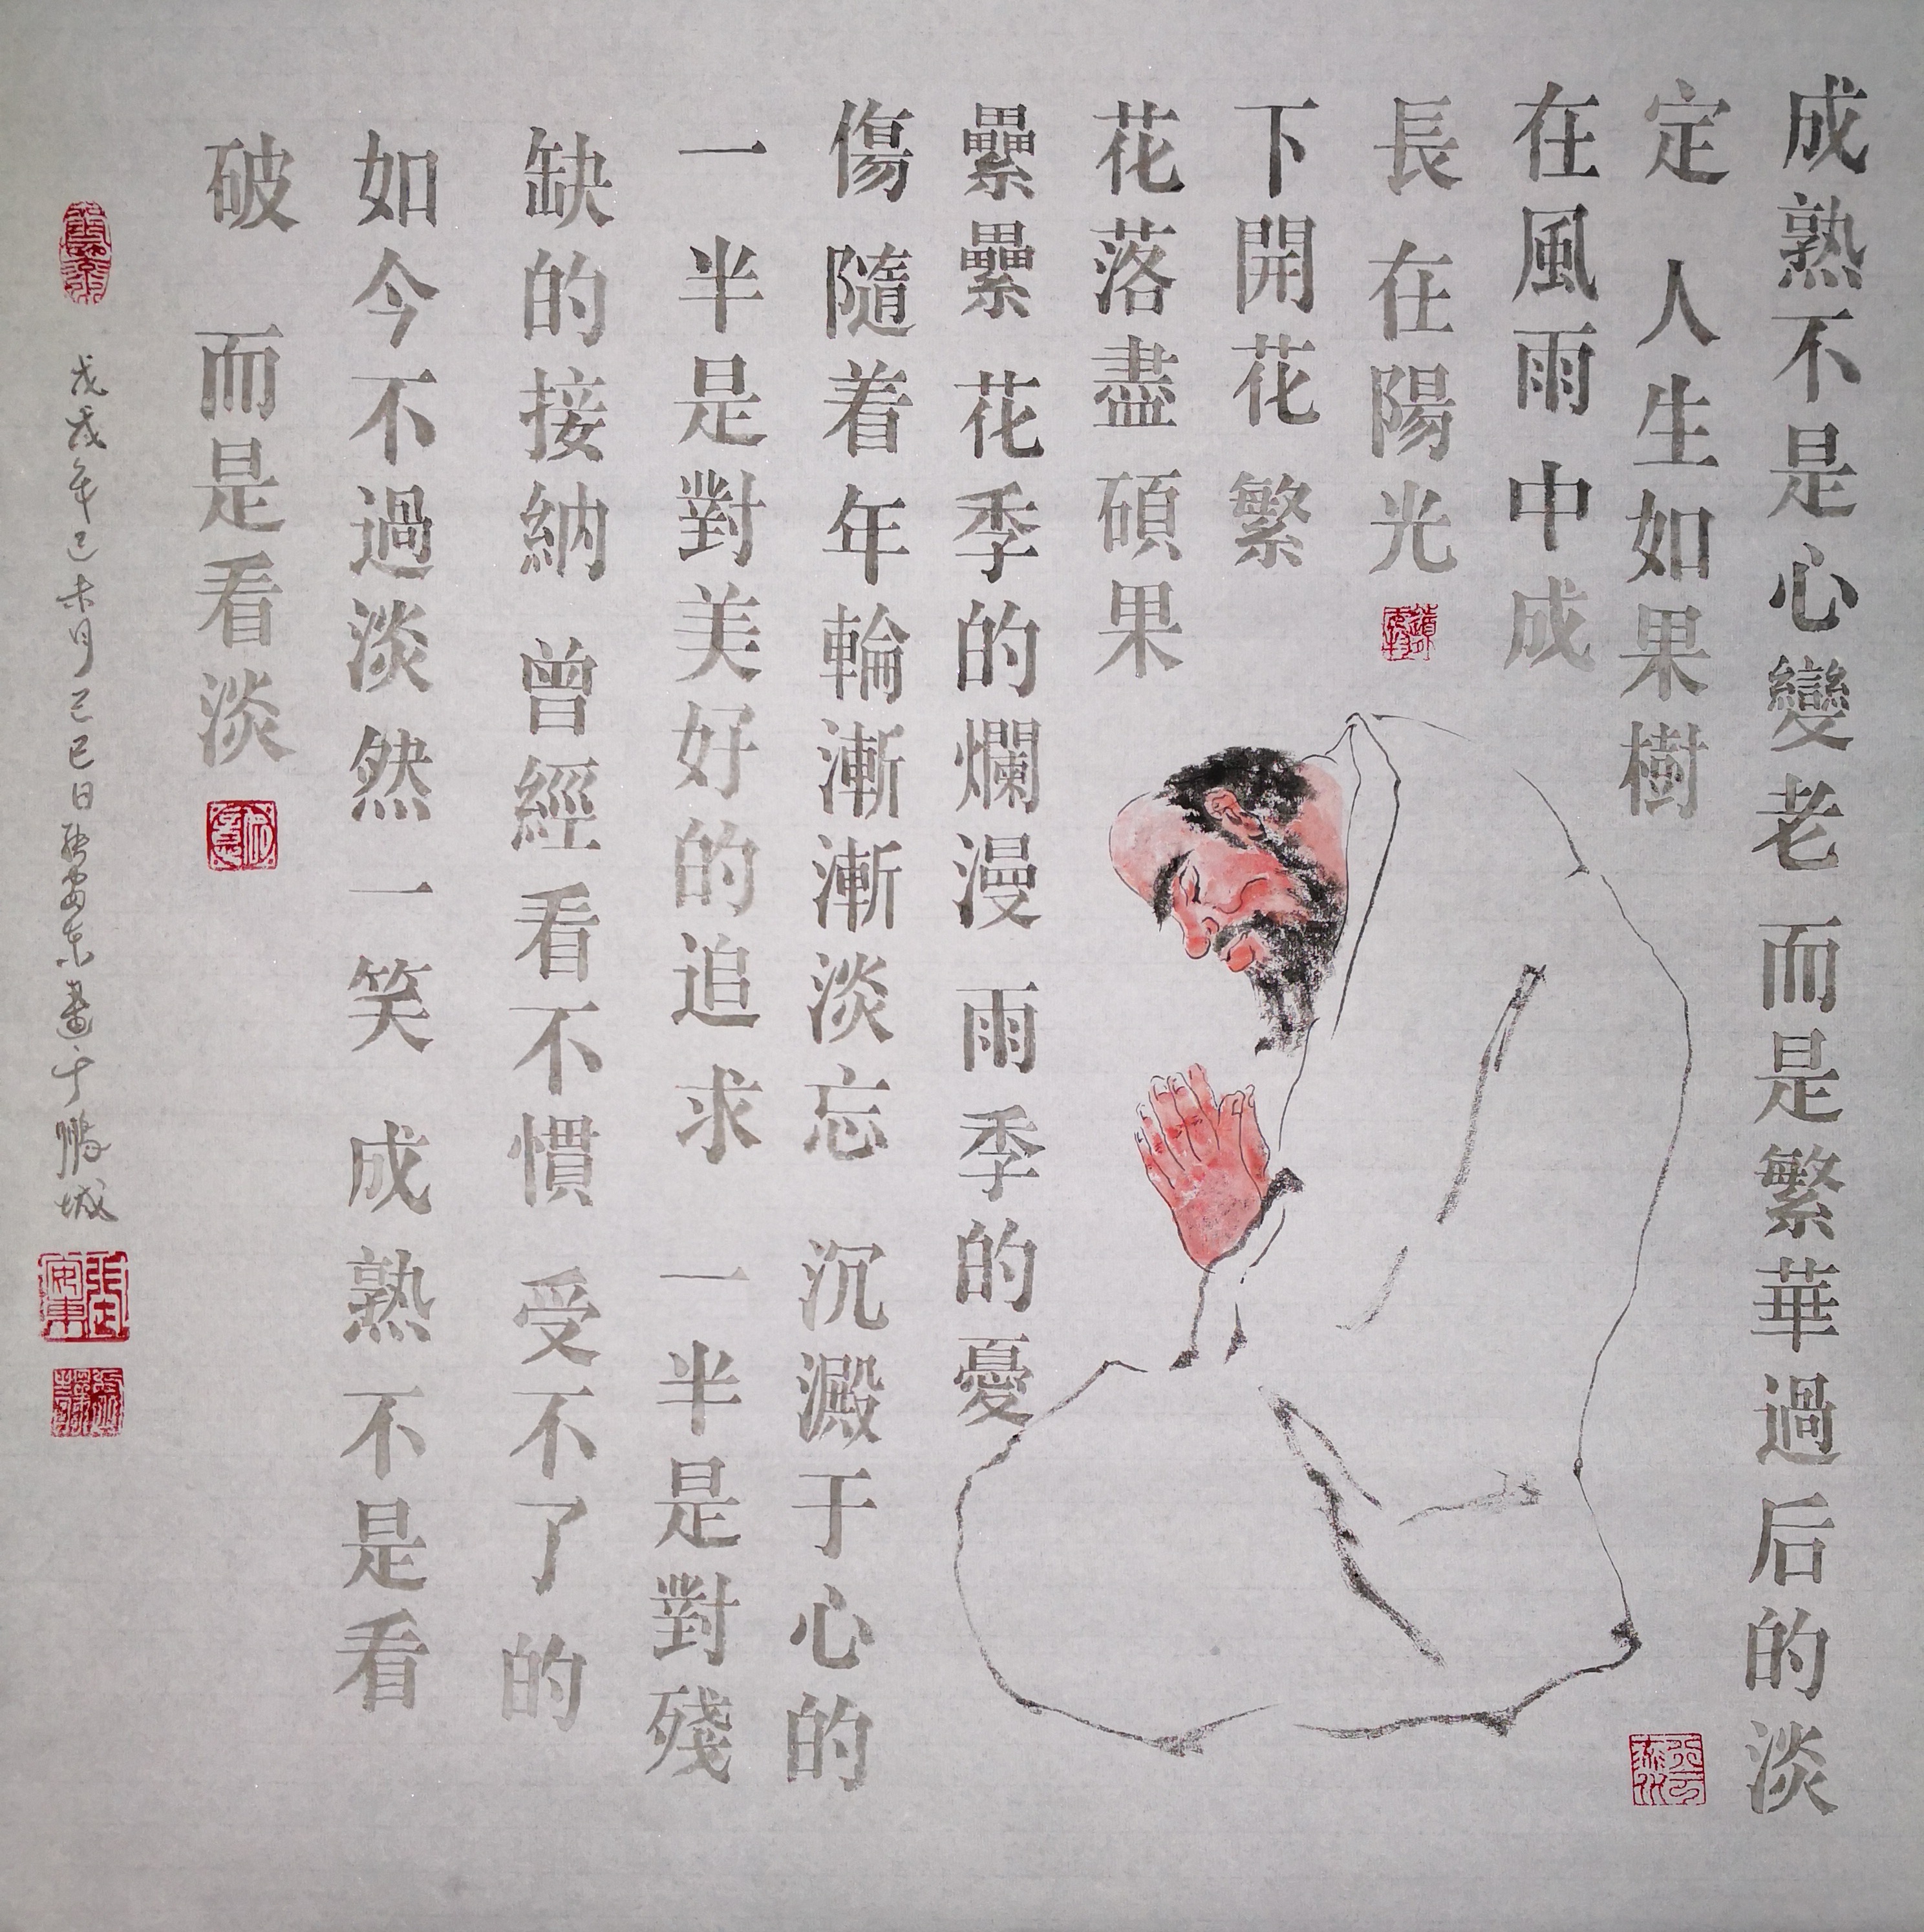 成熟不是心變老 而是繁華過后的淡
定 人生如果樹
在風雨中成
長 在陽光
下開花 繁
花落盡 碩果
纍纍 花季的爛漫 雨季的憂
傷 隨着年輪漸漸淡忘 沉澱于心的
一半是對美好的追求 一半是對殘
缺的接納 曾經看不慣 受不了的
如今不過淡然一笑 成熟 不是看
破 而是看淡
戊戌年己未月己巳日張安東畫于鵬城
張氏安東